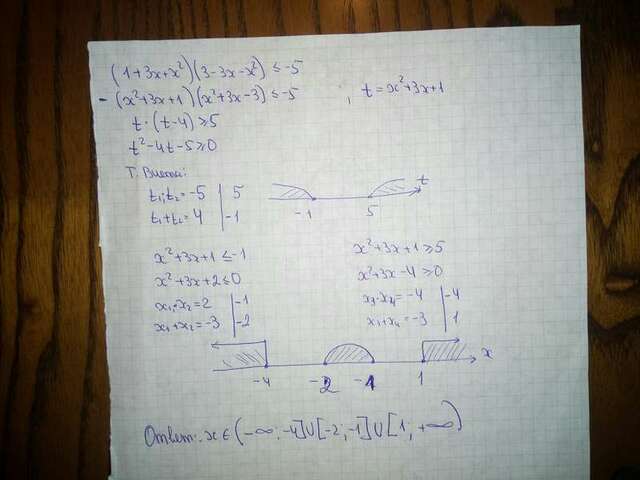 (1+3x+x²)(3-3x-x²) ≤ -5
-(x²+3x+1)(x²+3x-3) ≤ -5 , t = x²+3x+1
t·(t-4) ≥ 5
t²-4t-5 ≥ 0
Т. Виета:
t₁·t₂ = -5 | 5
t₁+t₂ = 4 | -1
-1 5 t
x²+3x+1 ≤ -1
x²+3x+2 ≤ 0
x₁·x₂ = 2 | -1
x₁+x₂ = -3 | -2
x²+3x+1 ≥ 5
x²+3x-4 ≥ 0
x₃·x₄ = -4 | -4
x₃+x₄ = -3 | 1
-4 -2 -1 1 x
Ответ: x ∈ (-∞; -4] ∪ [-2; -1] ∪ [1; +∞)